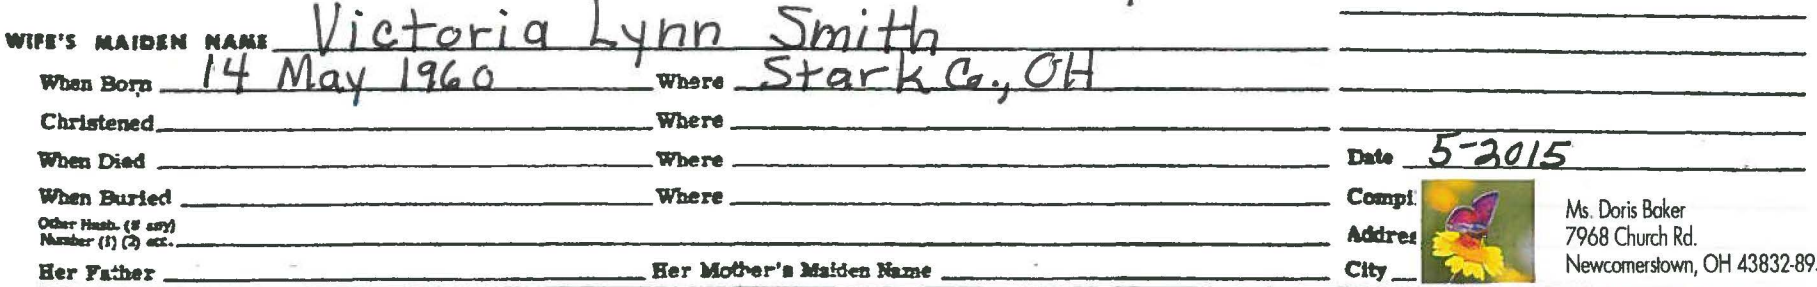 WIFE'S MAIDEN NAME Victoria Lynn Smith
When Born 14 May 1960 Where Stark Co., OH
Christened Where
When Died Where Date 5-2015
When Buried Where Compi
Other Husb. (if any)
Number (1) (2) etc. Addres
Her Father Her Mother's Maiden Name City
Ms. Doris Baker
7968 Church Rd.
Newcomerstown, OH 43832-89